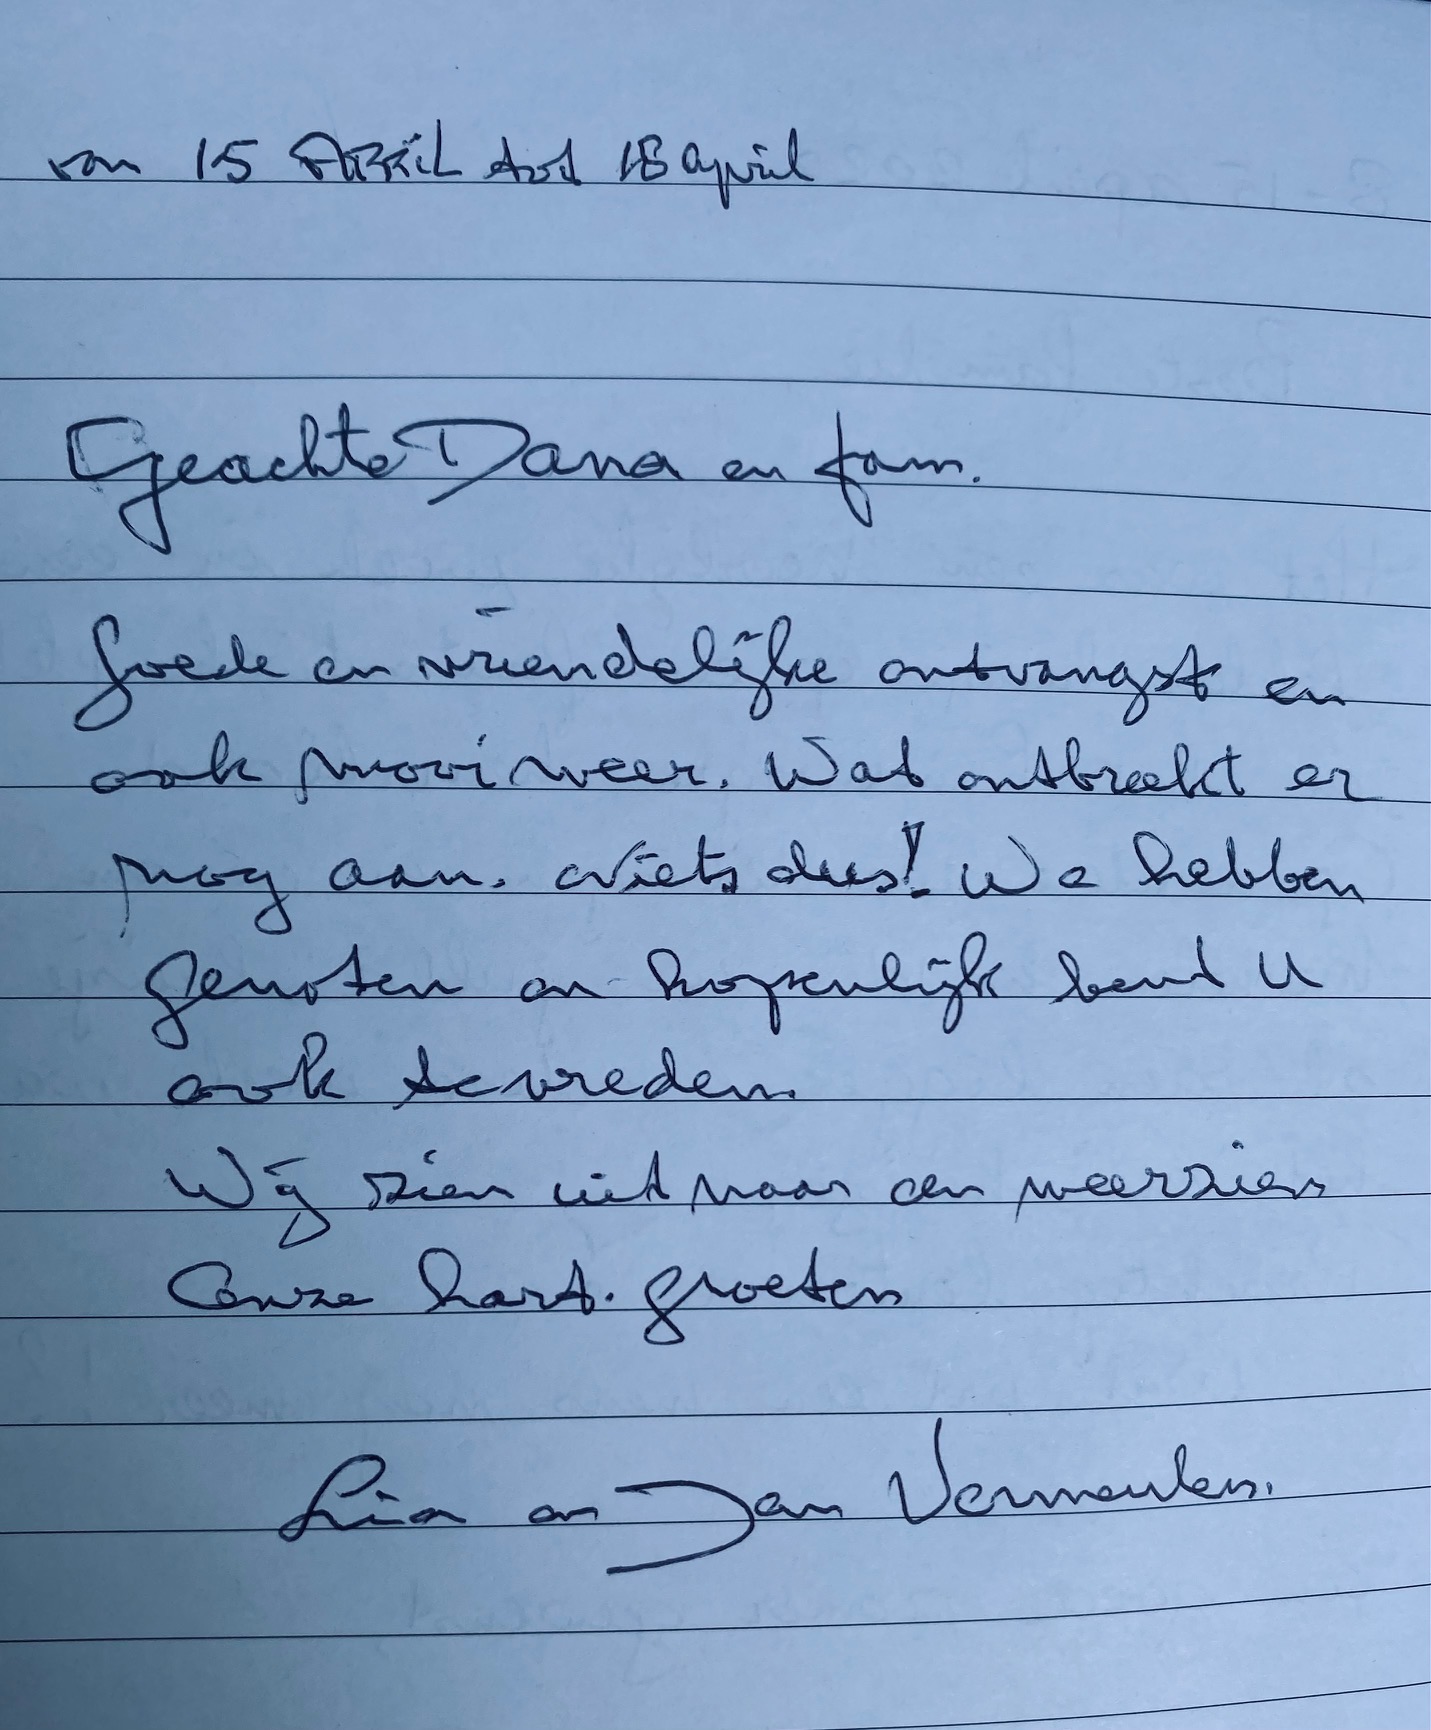 van 15 APRIL tot 18 april
Geachte Dana en fam.
Goede en vriendelijke ontvangst en
ook mooi weer. Wat ontbreekt er
nog aan. Niets dus! We hebben
genoten en hopenlijk bent U
ook tevreden.
Wij zien uit naar een weerzien
Onze hart. groeten
Lia en Jan Vermeulen.